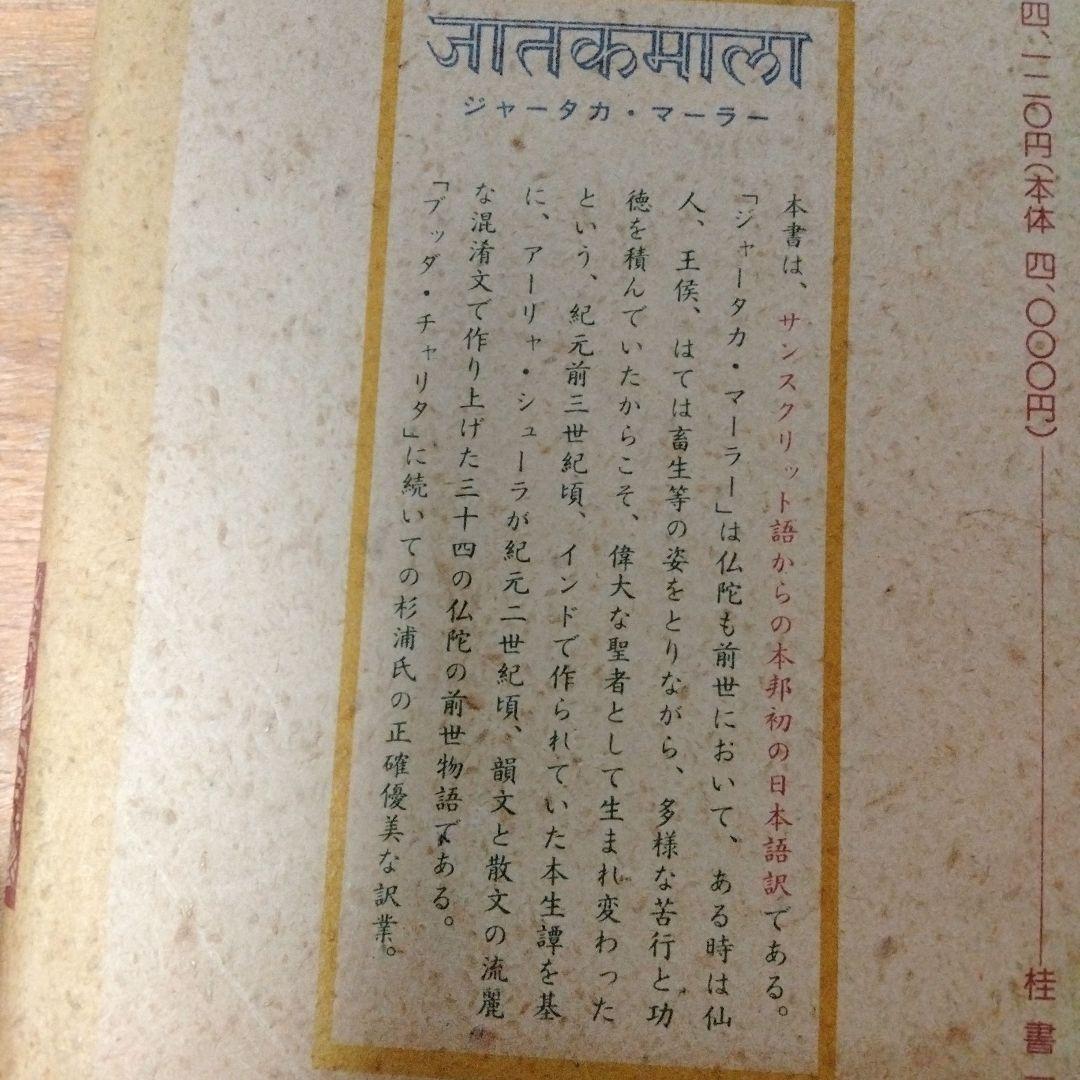 जातकमाला
ジャータカ・マーラー
本書は、サンスクリット語からの本邦初の日本語訳である。
「ジャータカ・マーラー」は仏陀も前世において、ある時は仙
人、王侯、はては畜生等の姿をとりながら、多様な苦行と功
徳を積んでいたからこそ、偉大な聖者として生まれ変わった
という、紀元前三世紀頃、インドで作られていた本生譚を基
に、アーリャ・シューラが紀元二世紀頃、韻文と散文の流麗
な混淆文で作り上げた三十四の仏陀の前世物語である。
「ブッダ・チャリタ」に続いての杉浦氏の正確優美な訳業。
四、一二〇円(本体 四、〇〇〇円)――桂 書